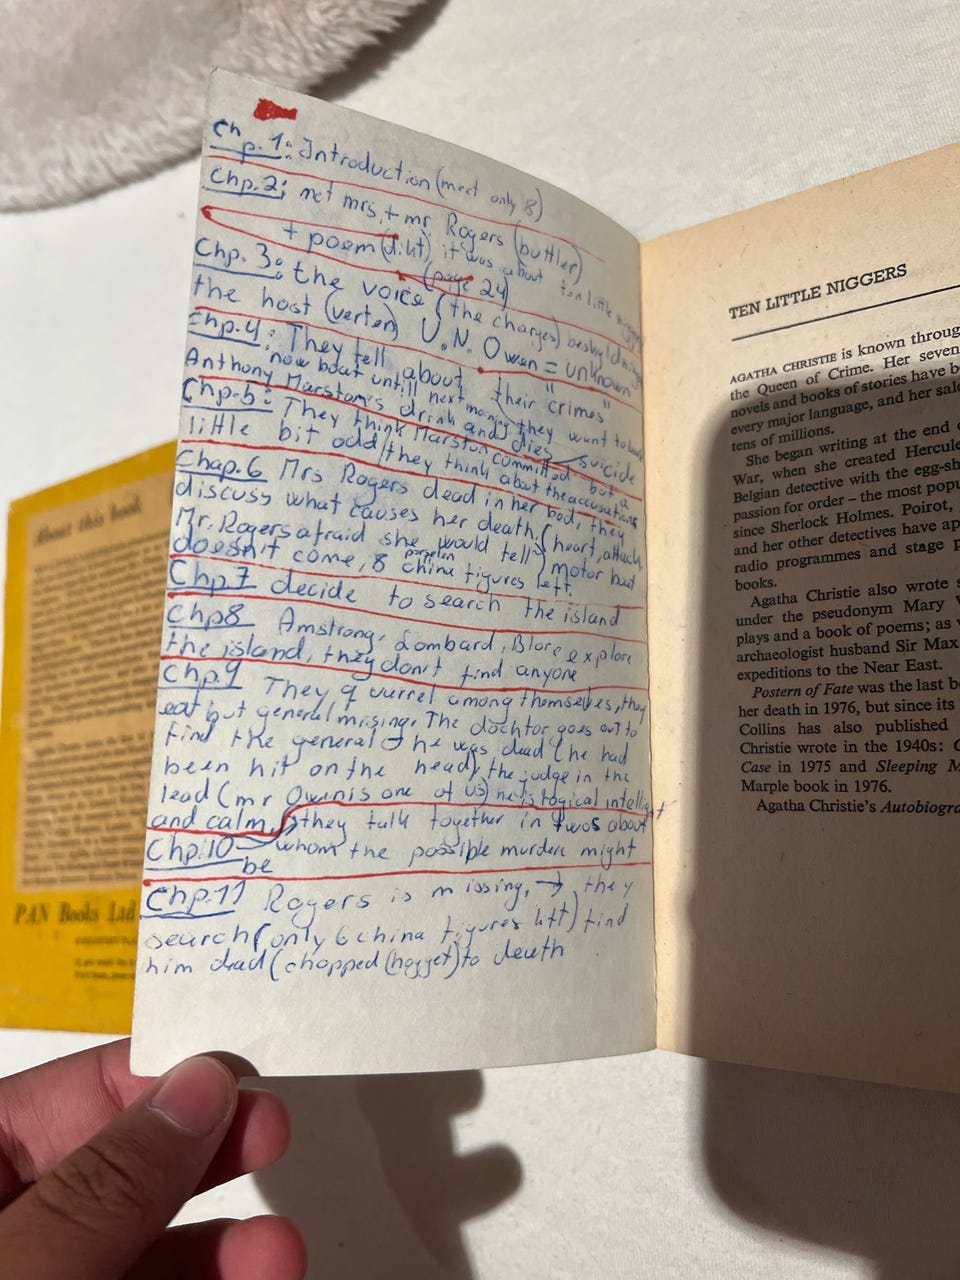 Chp. 1: Introduction (meet only 8)
Chp. 2: met mrs. + mr Rogers (buttler)
+ poem (dikt) it was about ten little niggers
(page 24)
Chp. 3: the voice (the charges) beskyldninger
the host (verten) U.N. Owen = unknown
Chp. 4: They tell about their "crimes"
now boat untill next morning they want to leave
Anthony Marston's drink and dies
Chp. 5: They think Marston committed suicide but a
little bit odd/they think about the accusations
Chap. 6 Mrs Rogers dead in her bed, they
discuss what causes her death, (heart, attack
Mr. Rogers afraid she would tell) motor boat
doesn't come, 8 porselen china figures left.
Chp 7 decide to search the island
Chp 8 Amstrong, Lombard, Blore explore
the island, they don't find anyone
Chp. 9 They quarrel among themselves, they
eat but general missing. The dochtor goes out to
find the general → he was dead (he had
been hit on the head), the judge in the
lead (mr Owen is one of us) he is logical intelligent
and calm, they talk together in twos about
Chp. 10 whom the possible murder might
be
Chp. 11 Rogers is missing, → they
search (only 6 china figures left) find
him dead (chopped (hogget) to death
TEN LITTLE NIGGERS
AGATHA CHRISTIE is known throug
the Queen of Crime. Her seven
novels and books of stories have be
every major language, and her sale
tens of millions.
She began writing at the end o
War, when she created Hercule
Belgian detective with the egg-sh
passion for order – the most popu
since Sherlock Holmes. Poirot,
and her other detectives have ap
radio programmes and stage p
books.
Agatha Christie also wrote s
under the pseudonym Mary W
plays and a book of poems; as w
archaeologist husband Sir Max
expeditions to the Near East.
Postern of Fate was the last b
her death in 1976, but since its
Collins has also published
Christie wrote in the 1940s: C
Case in 1975 and Sleeping M
Marple book in 1976.
Agatha Christie's Autobiogra
About this book
PAN Books Ltd